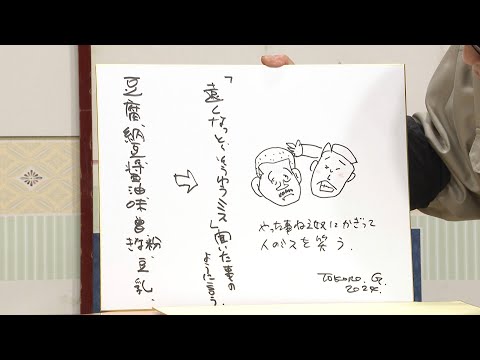 やった事ねえ奴にかぎって
人のミスを笑う.
TOKORO. G.
2024.
「遠くな
」聞いた事の
ように言う.
⇨
豆腐、納豆醤油味噌
きな粉、豆乳、